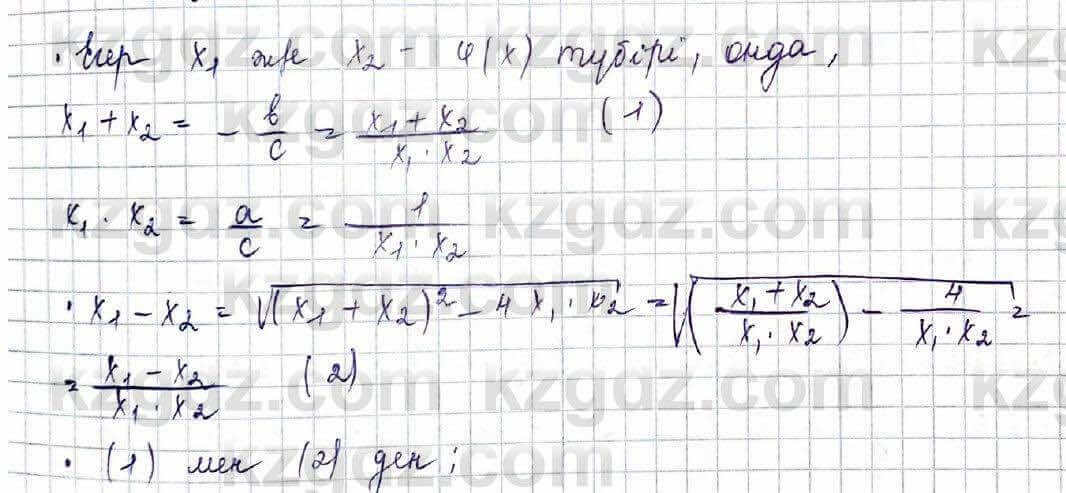 · Егер x₁ және x₂ - φ(x) түбірі, онда,
x₁ + x₂ = - b/c = (x₁ + x₂)/(x₁ · x₂) (1)
x₁ · x₂ = a/c = 1/(x₁ · x₂)
· x₁ - x₂ = √((x₁ + x₂)² - 4 x₁ · x₂) = √(((x₁ + x₂)/(x₁ · x₂)) - 4/(x₁ · x₂)) =
= (x₁ - x₂)/(x₁ · x₂) (2)
· (1) мен (2) ден;
kzgdz.com